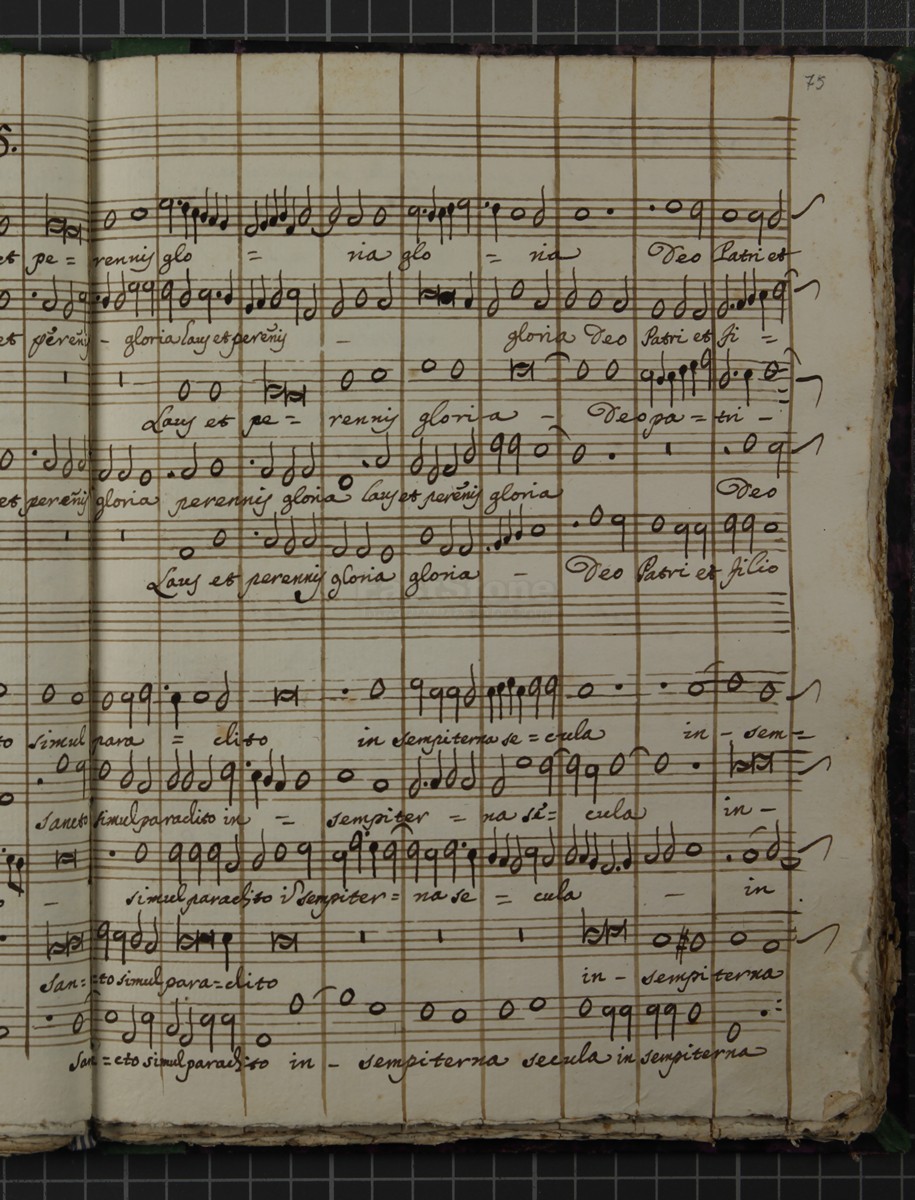 75
6.
et pe = rennis glo = ria glo = ria Deo Patri et
et pereñis - gloria laus et pereñis - gloria Deo Patri et fi =
Laus et pe = rennis gloria - Deo pa = tri -
et pereñis gloria perennis gloria laus et pereñis gloria Deo
Laus et perennis gloria gloria - Deo Patri et filio
to simul para = clito in sempiterna se = cula in - sem =
sancto simul paraclito in = sempiter = na se = cula in -
- simul paraclito iñ sempiter = na se = cula - in
San = cto simul para = clito in - sempiterna
San = cto simul paraclito in - sempiterna secula in sempiterna